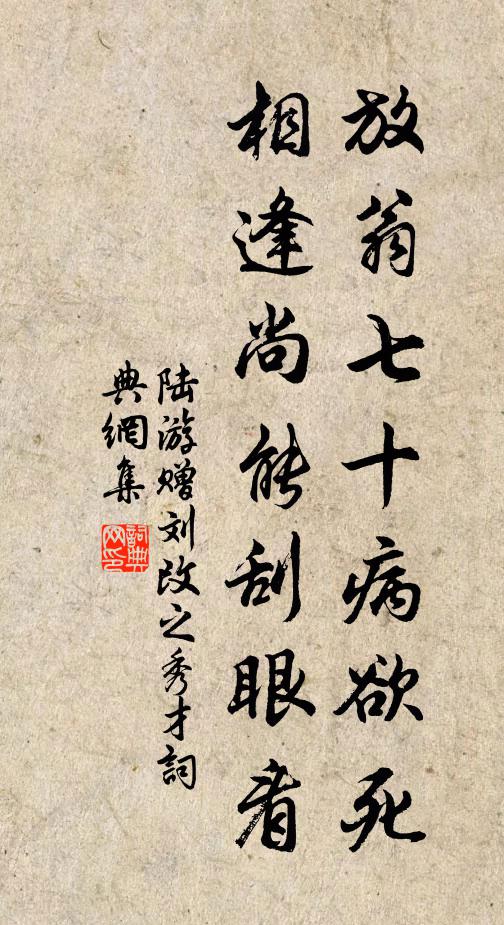 放翁七十病欲死
相逢尚能刮眼看
陆游赠刘改之秀才詞
典網集
詞典网印